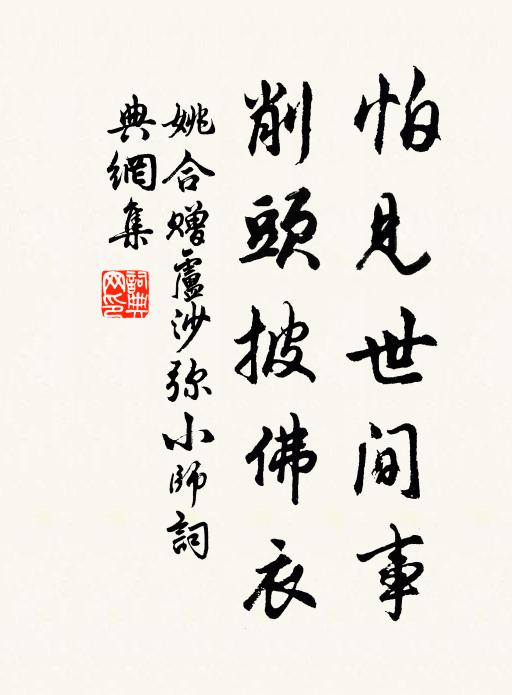 怕見世间事
削頭披佛衣
姚合赠盧沙弥小師詞
典網集
詞典网印